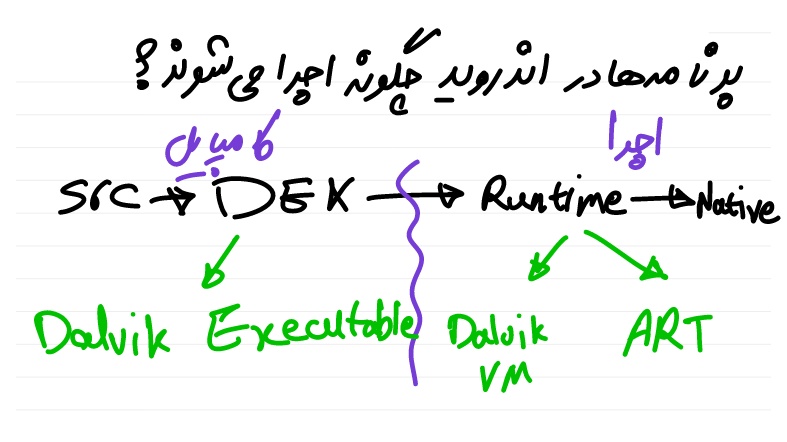 برنامه‌ها در اندروید چگونه اجرا می‌شوند؟
کامپایل اجرا
SrC → DEX → Runtime → Native
Dalvik Executable Dalvik VM ART